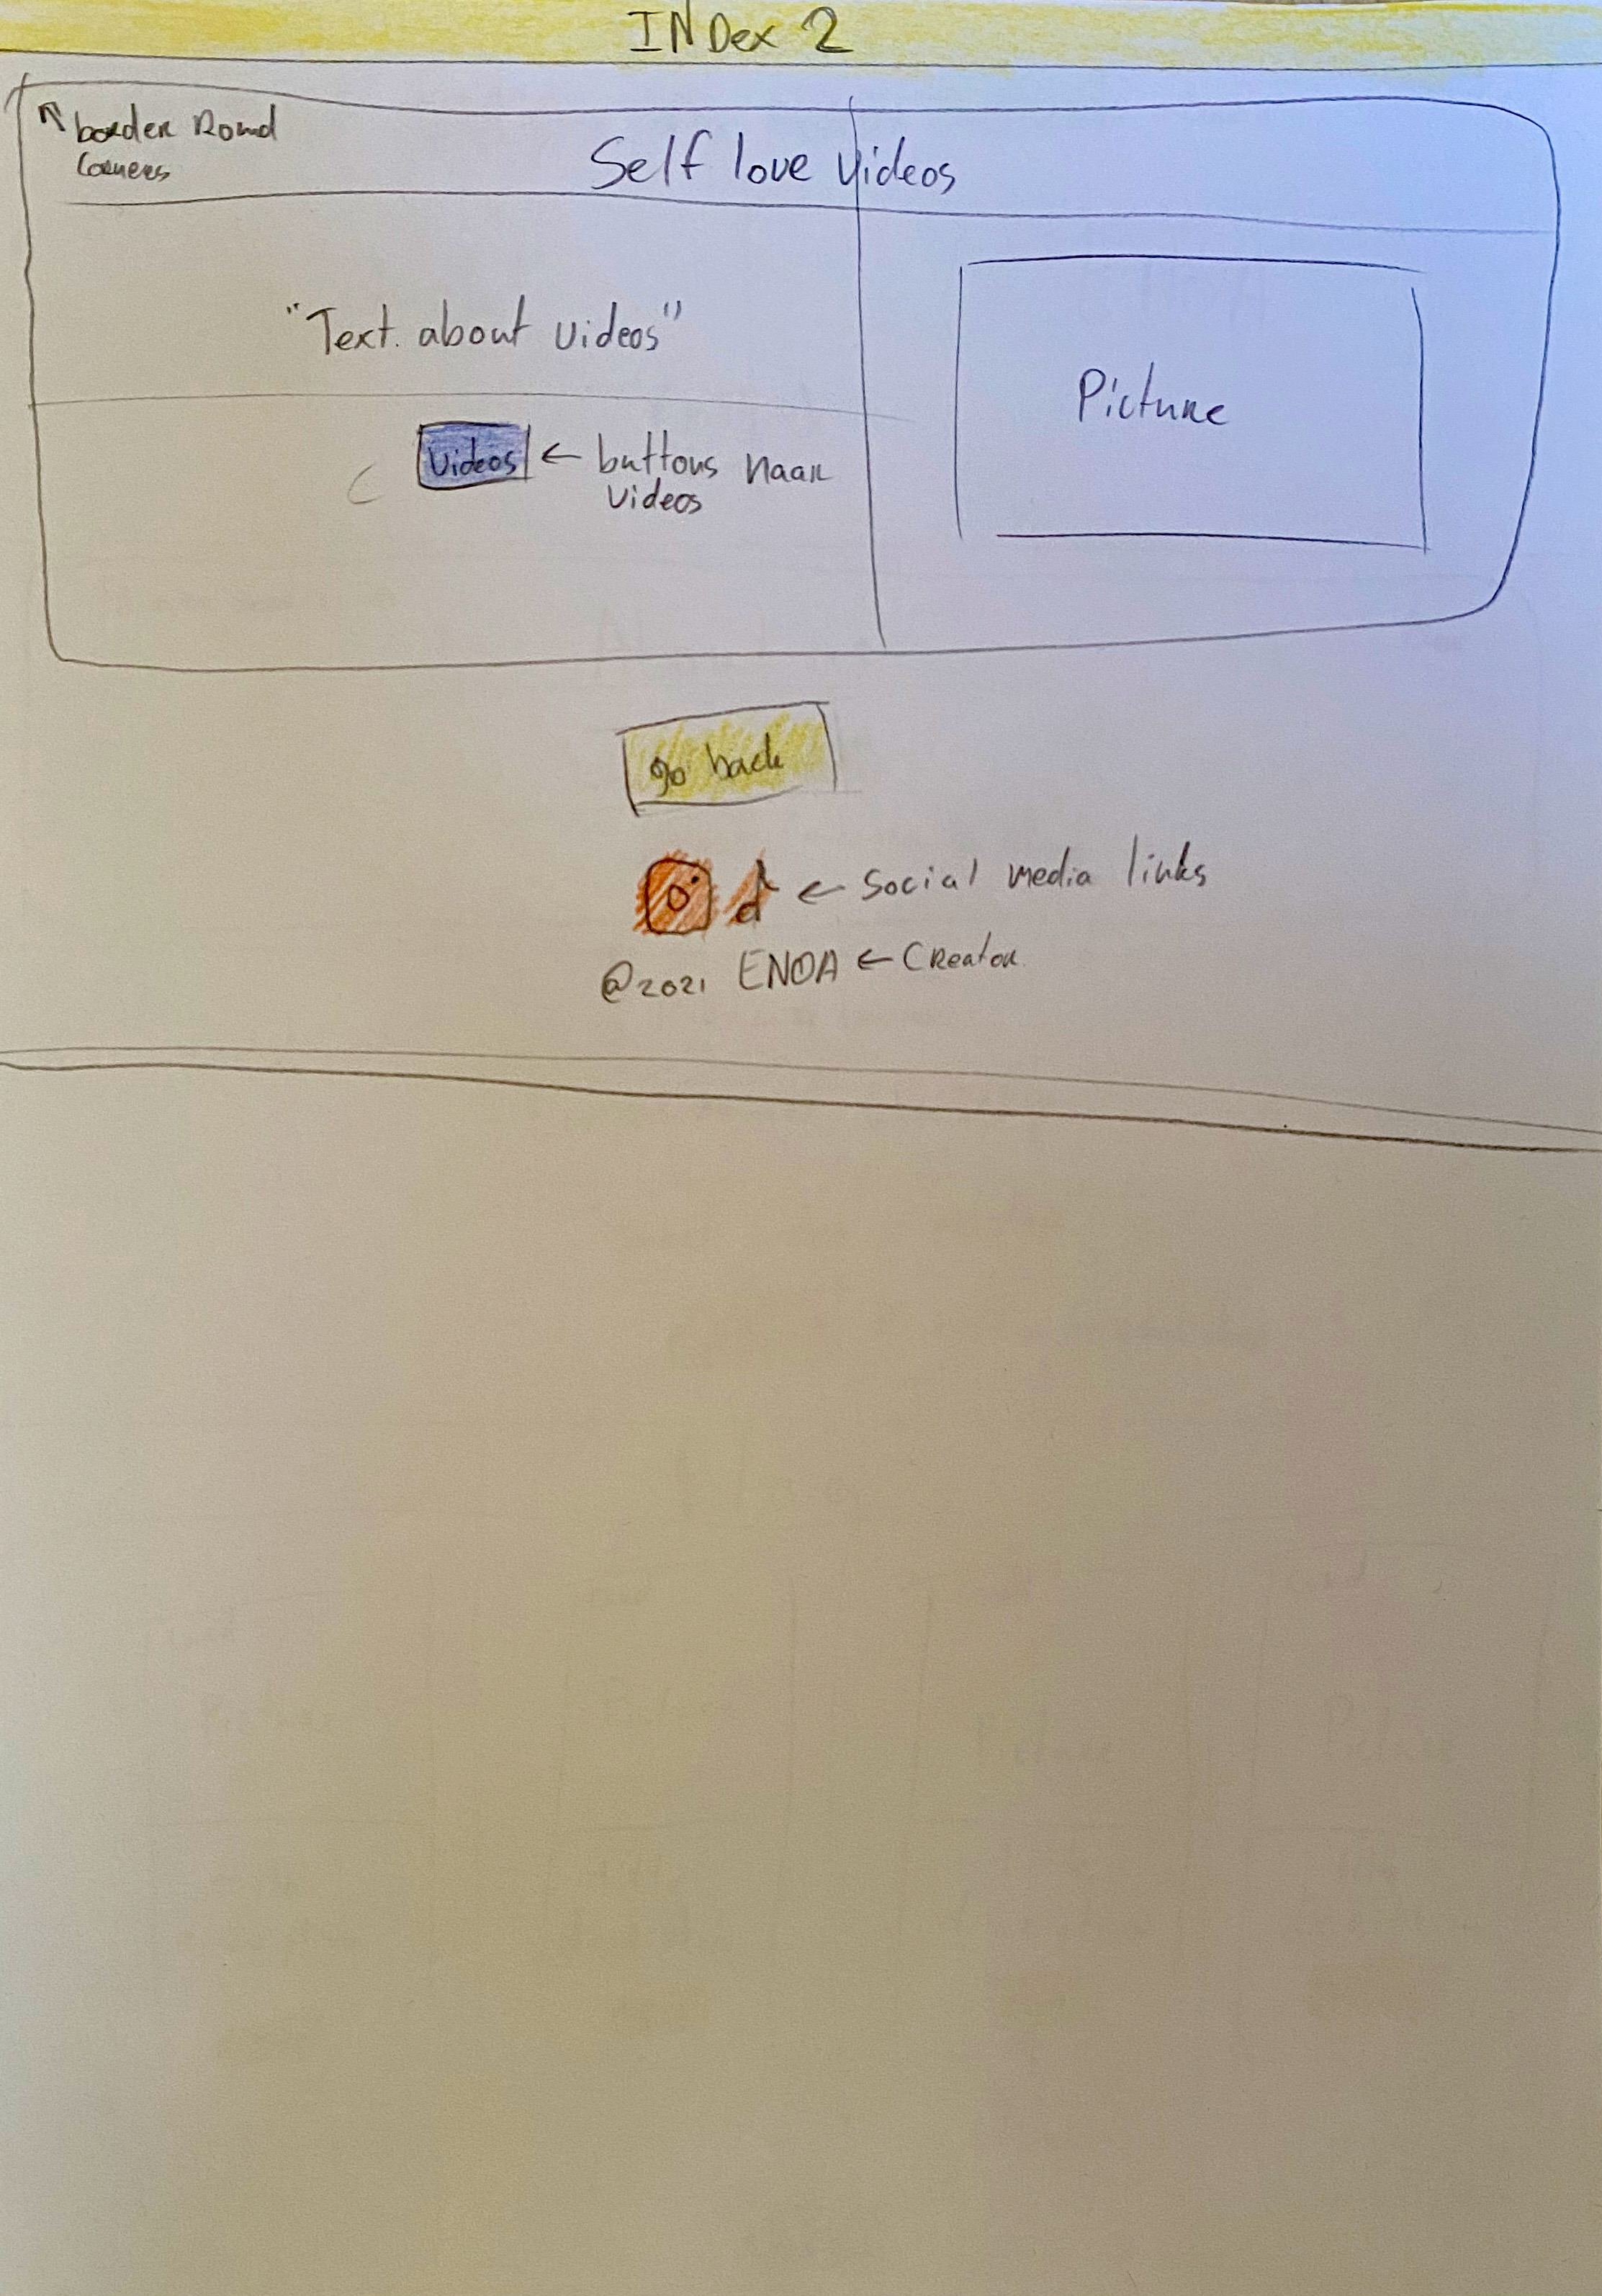 INDex 2
border Round
Corners
Self love Videos
"Text about videos"
Videos ← buttons naar
videos
Picture
go back
← social media links
@2021 ENOA ← Creator